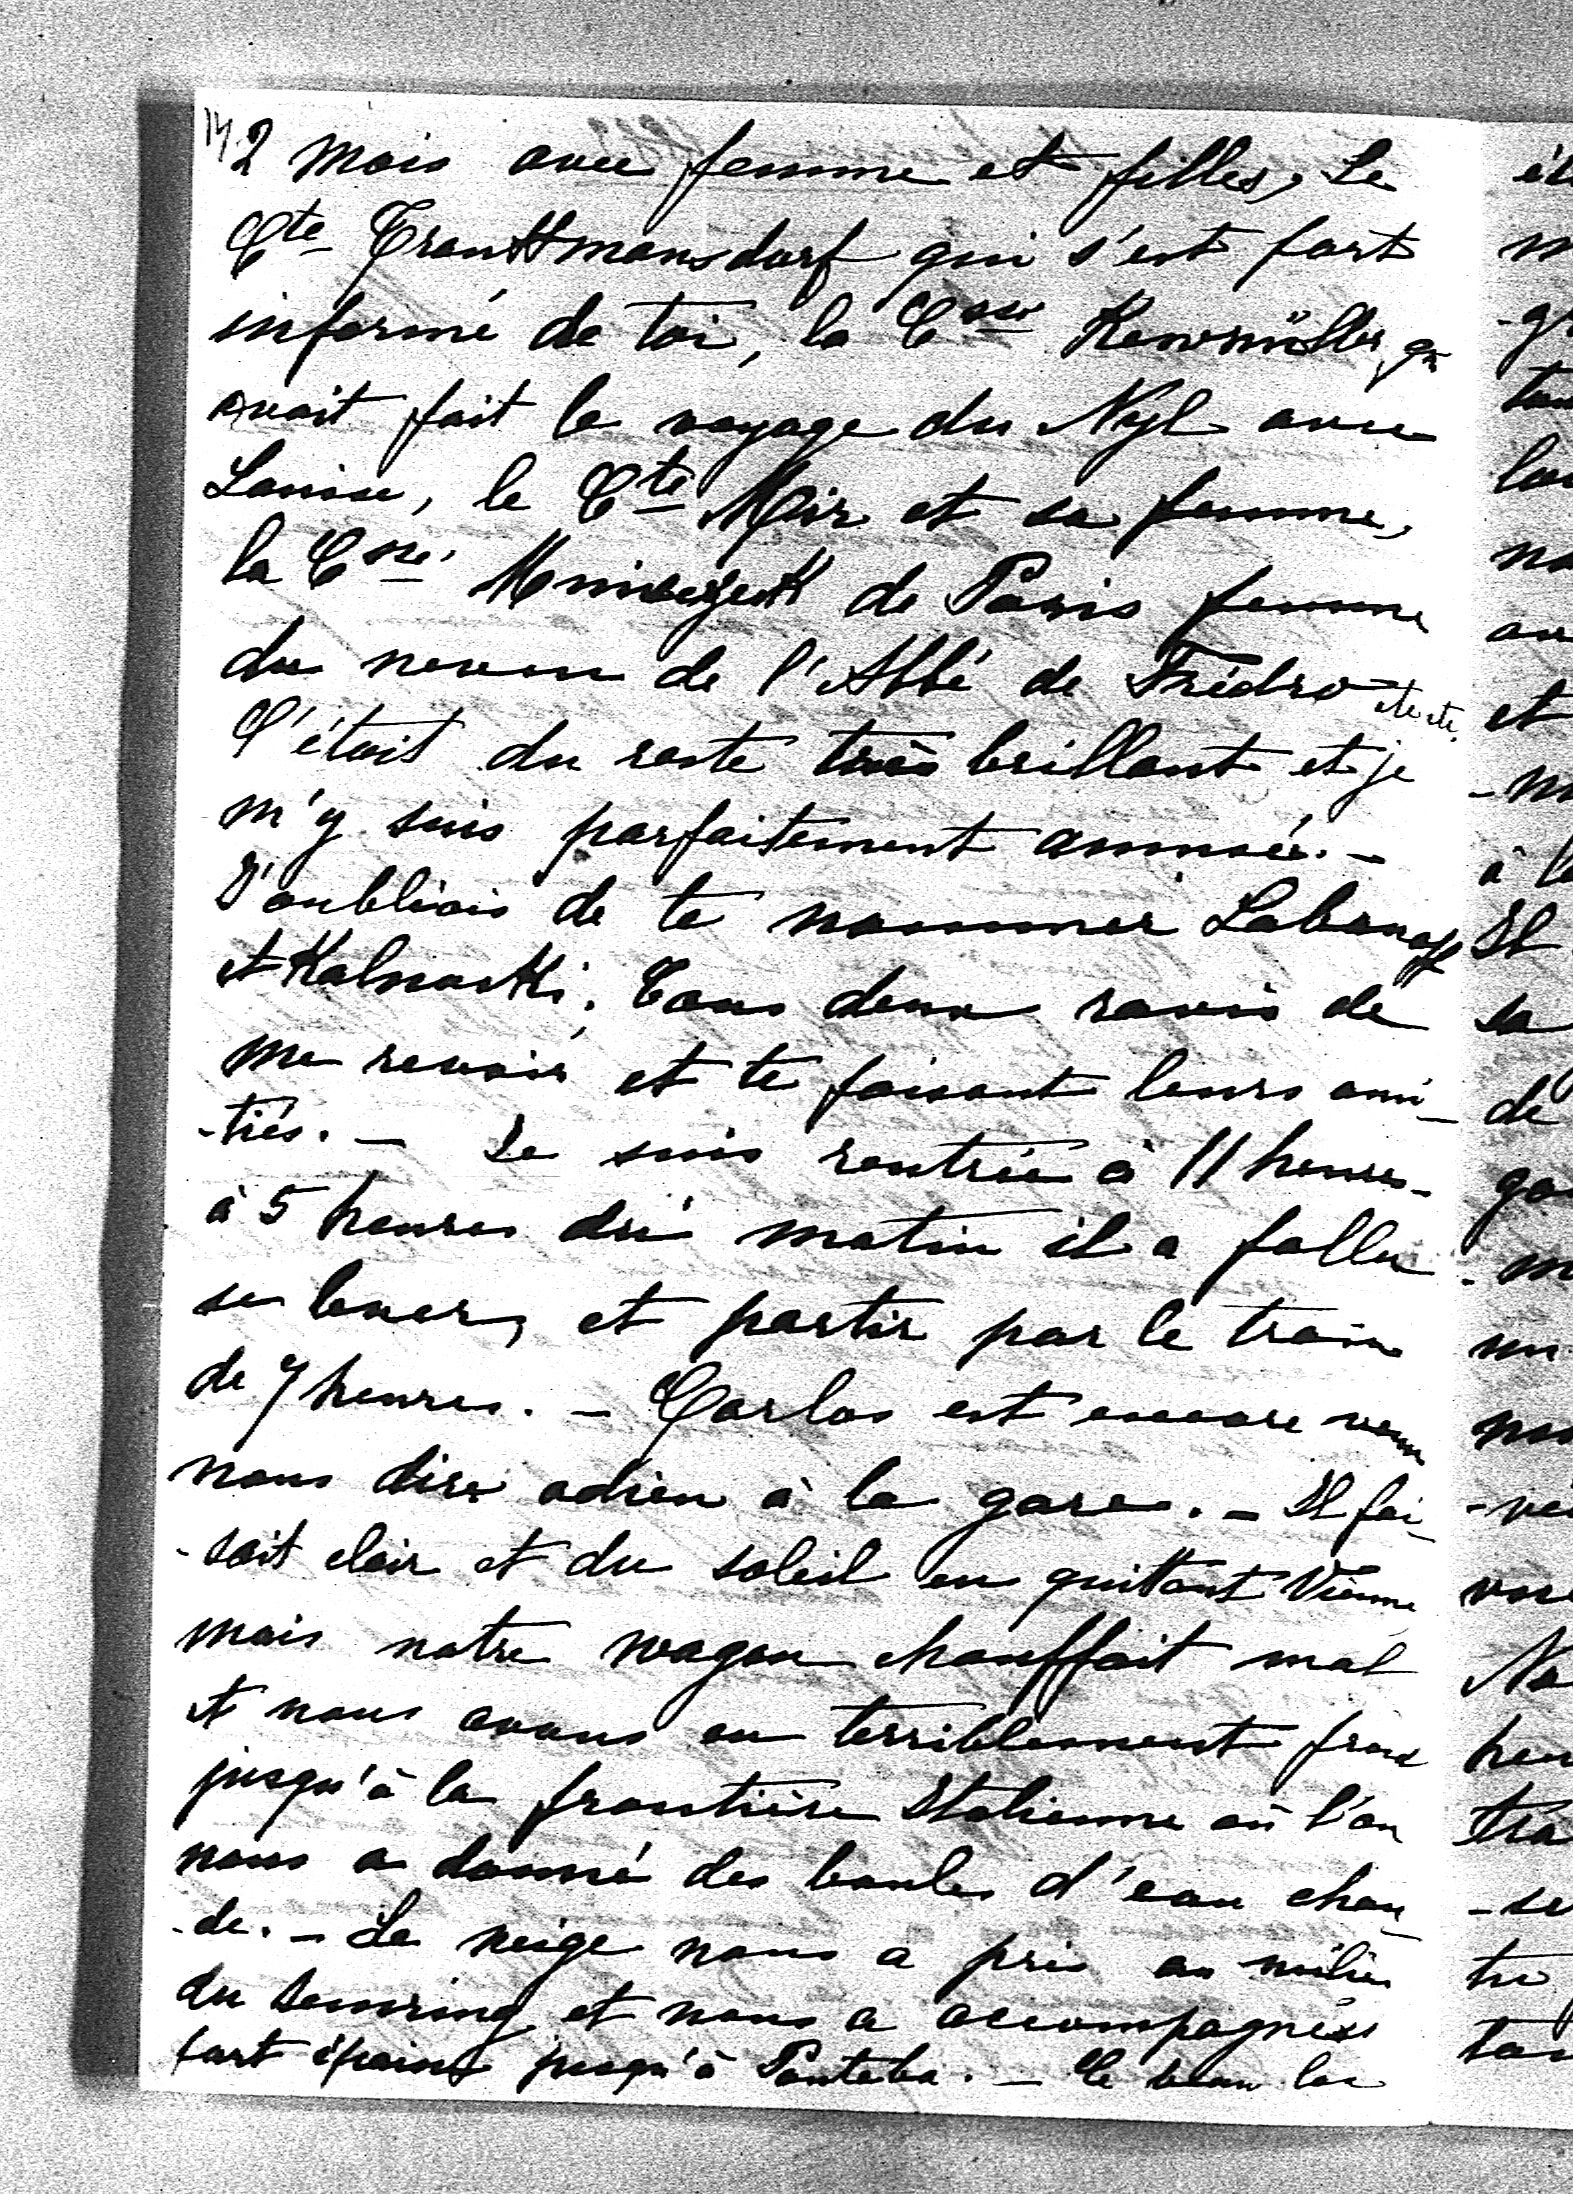 14.
2 mois avec femme et filles, Le
Cte Trauttmansdorf qui s'est fort
informé de toi, la Csse Kevnmüller, qui
avait fait le voyage du Nyl avec
Louise, le Cte Mir et sa femme,
la Csse Mniszezek de Paris femme
du neveu de l'Abbé de Frédro etc etc.
C'était du reste très brillant et je
m'y suis parfaitement amusée. -
J'oubliais de te nommer Labanoff
et Kalnocki. Tous deux ravis de
me revoir et te faisant leurs ami-
-tiés. - Je suis rentrée à 11 heures -
à 5 heures du matin il a fallu
se lever, et partir par le train
de 7 heures. - Carlos est encore venu
nous dire adieu à la gare. - Il fai-
-sait clair et du soleil en quittant Vienne
mais notre wagon chauffait mal
et nous avons eu terriblement froid
jusqu'à la frontière Italienne où l'on
nous a donné des boules d'eau chau-
-de. - La neige nous a pris au milieu
du Semring et nous a accompagnés
fort épaisse jusqu'à Ponteba. - Le beau lac